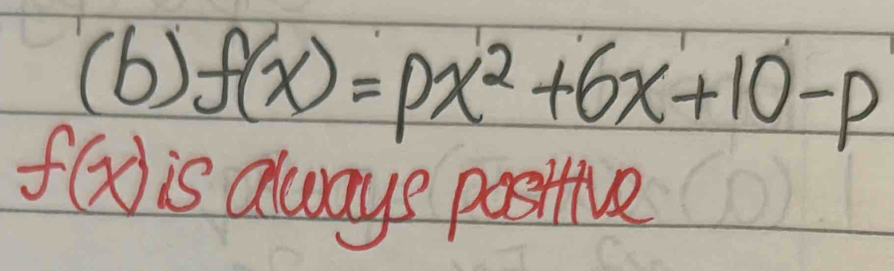 (b) f(x) = px² + 6x + 10 - p
f(x) is always positive